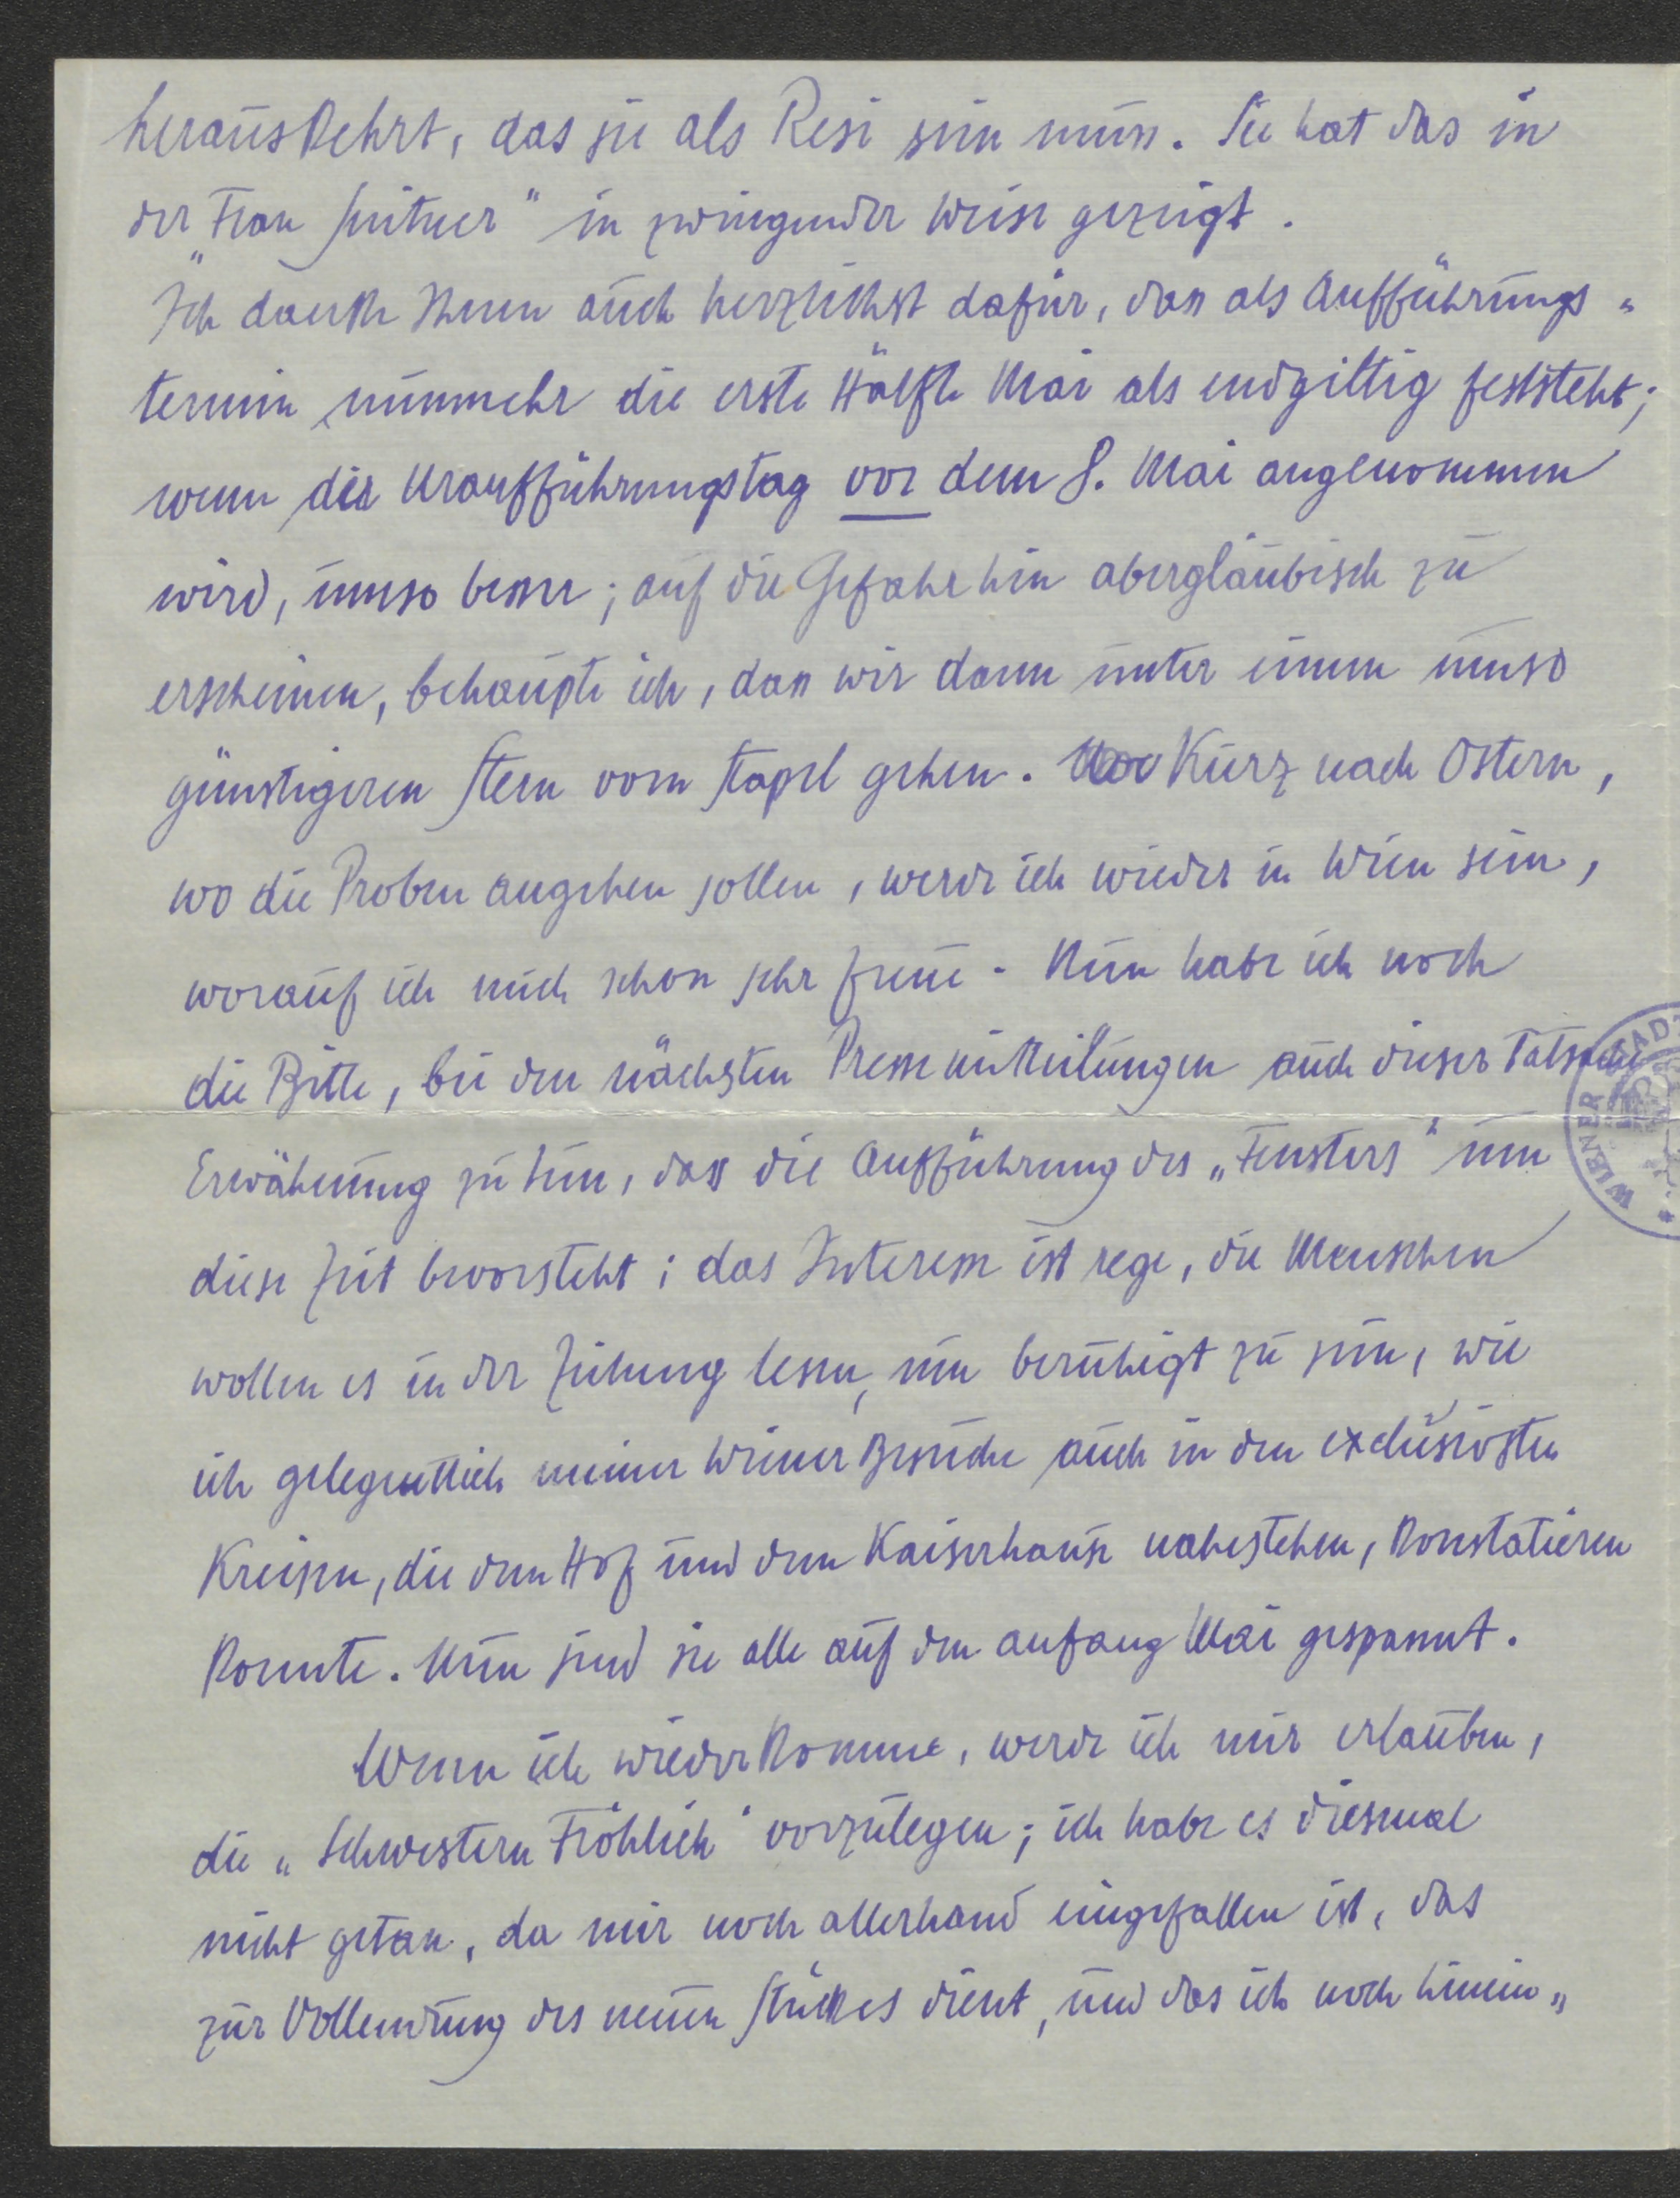 herauskehrt, das sie als Resi sein muss. Sie hat das in
der „Frau Suitner" in zwingender Weise gezeigt.
Ich danke Ihnen auch herzlichst dafür, dass als Aufführungs-
termin nunmehr die erste Hälfte Mai als endgiltig feststeht;
wenn der Uraufführungstag vor dem 8. Mai angenommen
wird, umso besser; auf die Gefahr hin abergläubisch zu
erscheinen, behaupte ich, dass wir dann unter einem umso
günstigeren Stern vom Stapel gehen. Kurz nach Ostern,
wo die Proben angehen sollen, werde ich wieder in Wien sein,
worauf ich mich schon sehr freue. Nun habe ich noch
die Bitte, bei den nächsten Pressemitteilungen auch dieser Tatsache
Erwähnung zu tun, dass die Aufführung des „Fensters" um
diese Zeit bevorsteht; das Interesse ist rege, die Menschen
wollen es in der Zeitung lesen, um beruhigt zu sein, wie
ich gelegentlich meiner Wiener Besuche auch in den exclusivsten
Kreisen, die dem Hof und dem Kaiserhause nahestehen, konstatieren
konnte. Nun sind sie alle auf den anfang Mai gespannt.
Wenn ich wiederkomme, werde ich mir erlauben,
die „Schwestern Fröhlich" vorzulegen; ich habe es diesmal
nicht getan, da mir noch allerhand eingefallen ist, das
zur Vollendung des neuen Stückes dient, und das ich noch hinein-
WIENER STADT